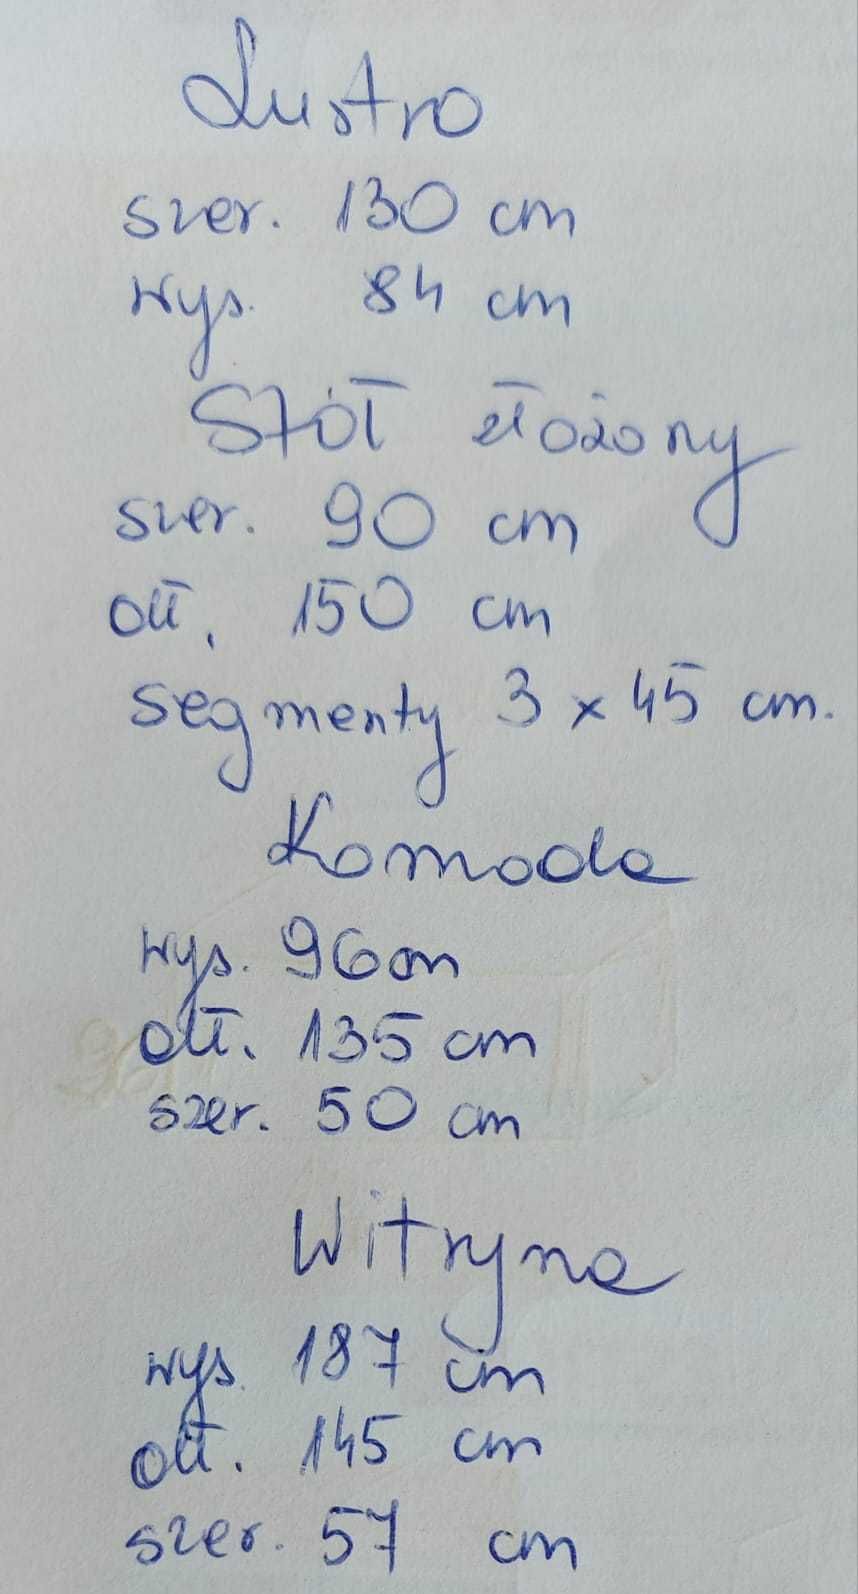 Lustro
szer. 130 cm
wys. 84 cm
Stół złożony
szer. 90 cm
dł. 150 cm
segmenty 3 x 45 cm.
Komoda
wys. 96 cm
dł. 135 cm
szer. 50 cm
Witryna
wys. 187 cm
dł. 145 cm
szer. 57 cm